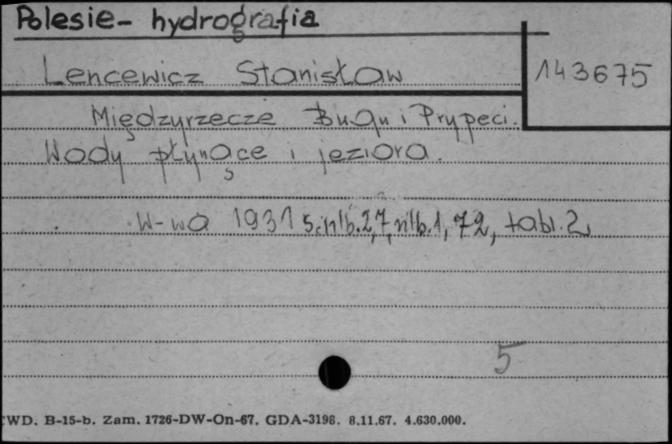 Polesie- hydrografia
Lencewicz Stanisław
143675
Międzyrzecze Bugu i Prypeci.
Wody płynące i jeziora.
W-wa 1931 s.nlb.2,7,nlb.1, 72, tabl. 2
5
CWD. B-15-b. Zam. 1726-DW-On-67. GDA-3198. 8.11.67. 4.630.000.